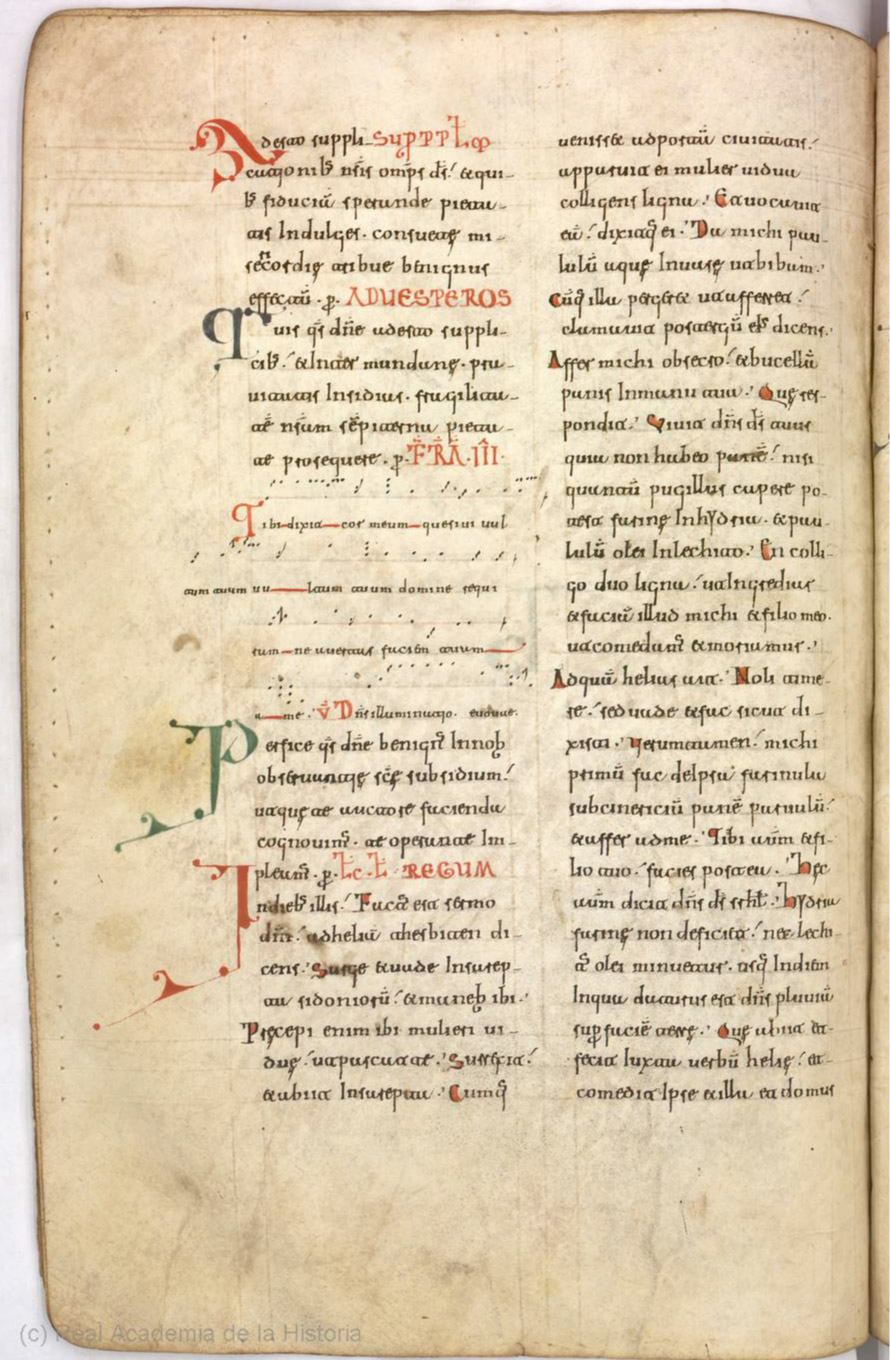 Adesto suppli- SUP PPŁM
cationib; nr̄is omp̄s ds̄. & qui-
b; fiduciā sperande pieta-
tis Indulges. consuetę mi-
sēcordię tribue benignus
effectū. p. AD UESPEROS
Tuis qs̄ dn̄e adesto suppli-
cib; & Inter mundanę. pra-
uitatis Insidias. fragilita-
tē nr̄am sēpiterna pieta-
te prosequere. p. FR̄A. III.
Tibi dixit cor meum quesiui uul
tum tuum uultum tuum domine requi
ram ne auertas faciem tuam
a me. V̄ Dn̄s illuminatio.
Perfice qs̄ dn̄e benign̄ In nob
obseruantię scę̄ subsidium.
ut quę te auctore facienda
cognouim̄. te operante Im-
pleam̄. p. Łc. Ł REGUM
In dieb; illis. Facta est sermo
dn̄i. ad heliā thesbiten di-
cens. Surge & uade In sarep-
ta sidoniorū. & maneb ibi.
Pręcepi enim ibi mulieri ui-
duę. ut pascat te. Surrexit.
& abiit In sarepta. Cumq;
uenisset ad portā ciuitatis.
apparuit ei mulier uidua
colligens ligna. Et uocauit
eā. dixitq; ei. Da michi pau-
lulū aquę In uase ut bibam.
Cūq; illa pergeret ut afferret.
clamauit post tergū eius dicens.
Affer michi obsecro. & bucellā
panis In manu tua. Quę res-
pondit. Viuit dn̄s ds̄ tuus
quia non habeo panē. nisi
quantū pugillus capere po-
test farinę In hydria. & pau-
lulū olei In lechito. En colli-
go duo ligna. ut Ingrediar
& faciā illud michi & filio meo.
ut comedam̄ & moriamur.
Ad quā helias ait. Noli time-
re. sed uade & fac sicut di-
xisti. Uerumtamen. michi
primū fac de Ipsa farinula
subcinericiū panē paruulū.
& affer ad me. Tibi autm̄ & fi-
lio tuo. facies postea. Hęc
autm̄ dicit dn̄s ds̄ srhł. Hydria
farinę non deficiet. nec lechi-
tꝰ olei minuetur. usq; In diem
In qua daturus est dn̄s pluuiā
sup faciē terrę. Quę abiit &
fecit Iuxta uerbū helię. &
comedit Ipse & illa et domus